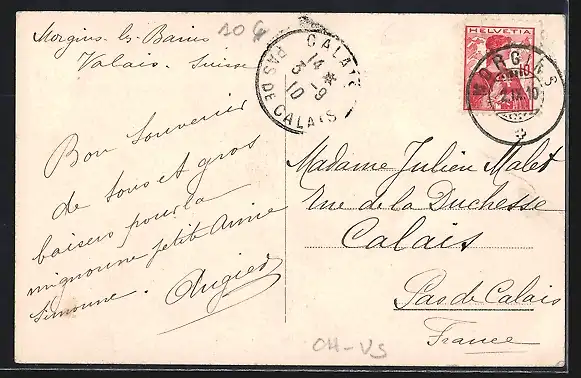 Morgins les Bains
Valais. Suisse
10 G
CALAIS
14 *
3 -9
10
PAS DE CALAIS
HELVETIA
10
MORGINS
2.IX.10
Bon Souvenir
de tous et gros
baisers pour la
mignonne petite Amie
Simonne.
Madame Julien Malet
Rue de la Duchesse
Calais
Pas de Calais
France
CH-VS